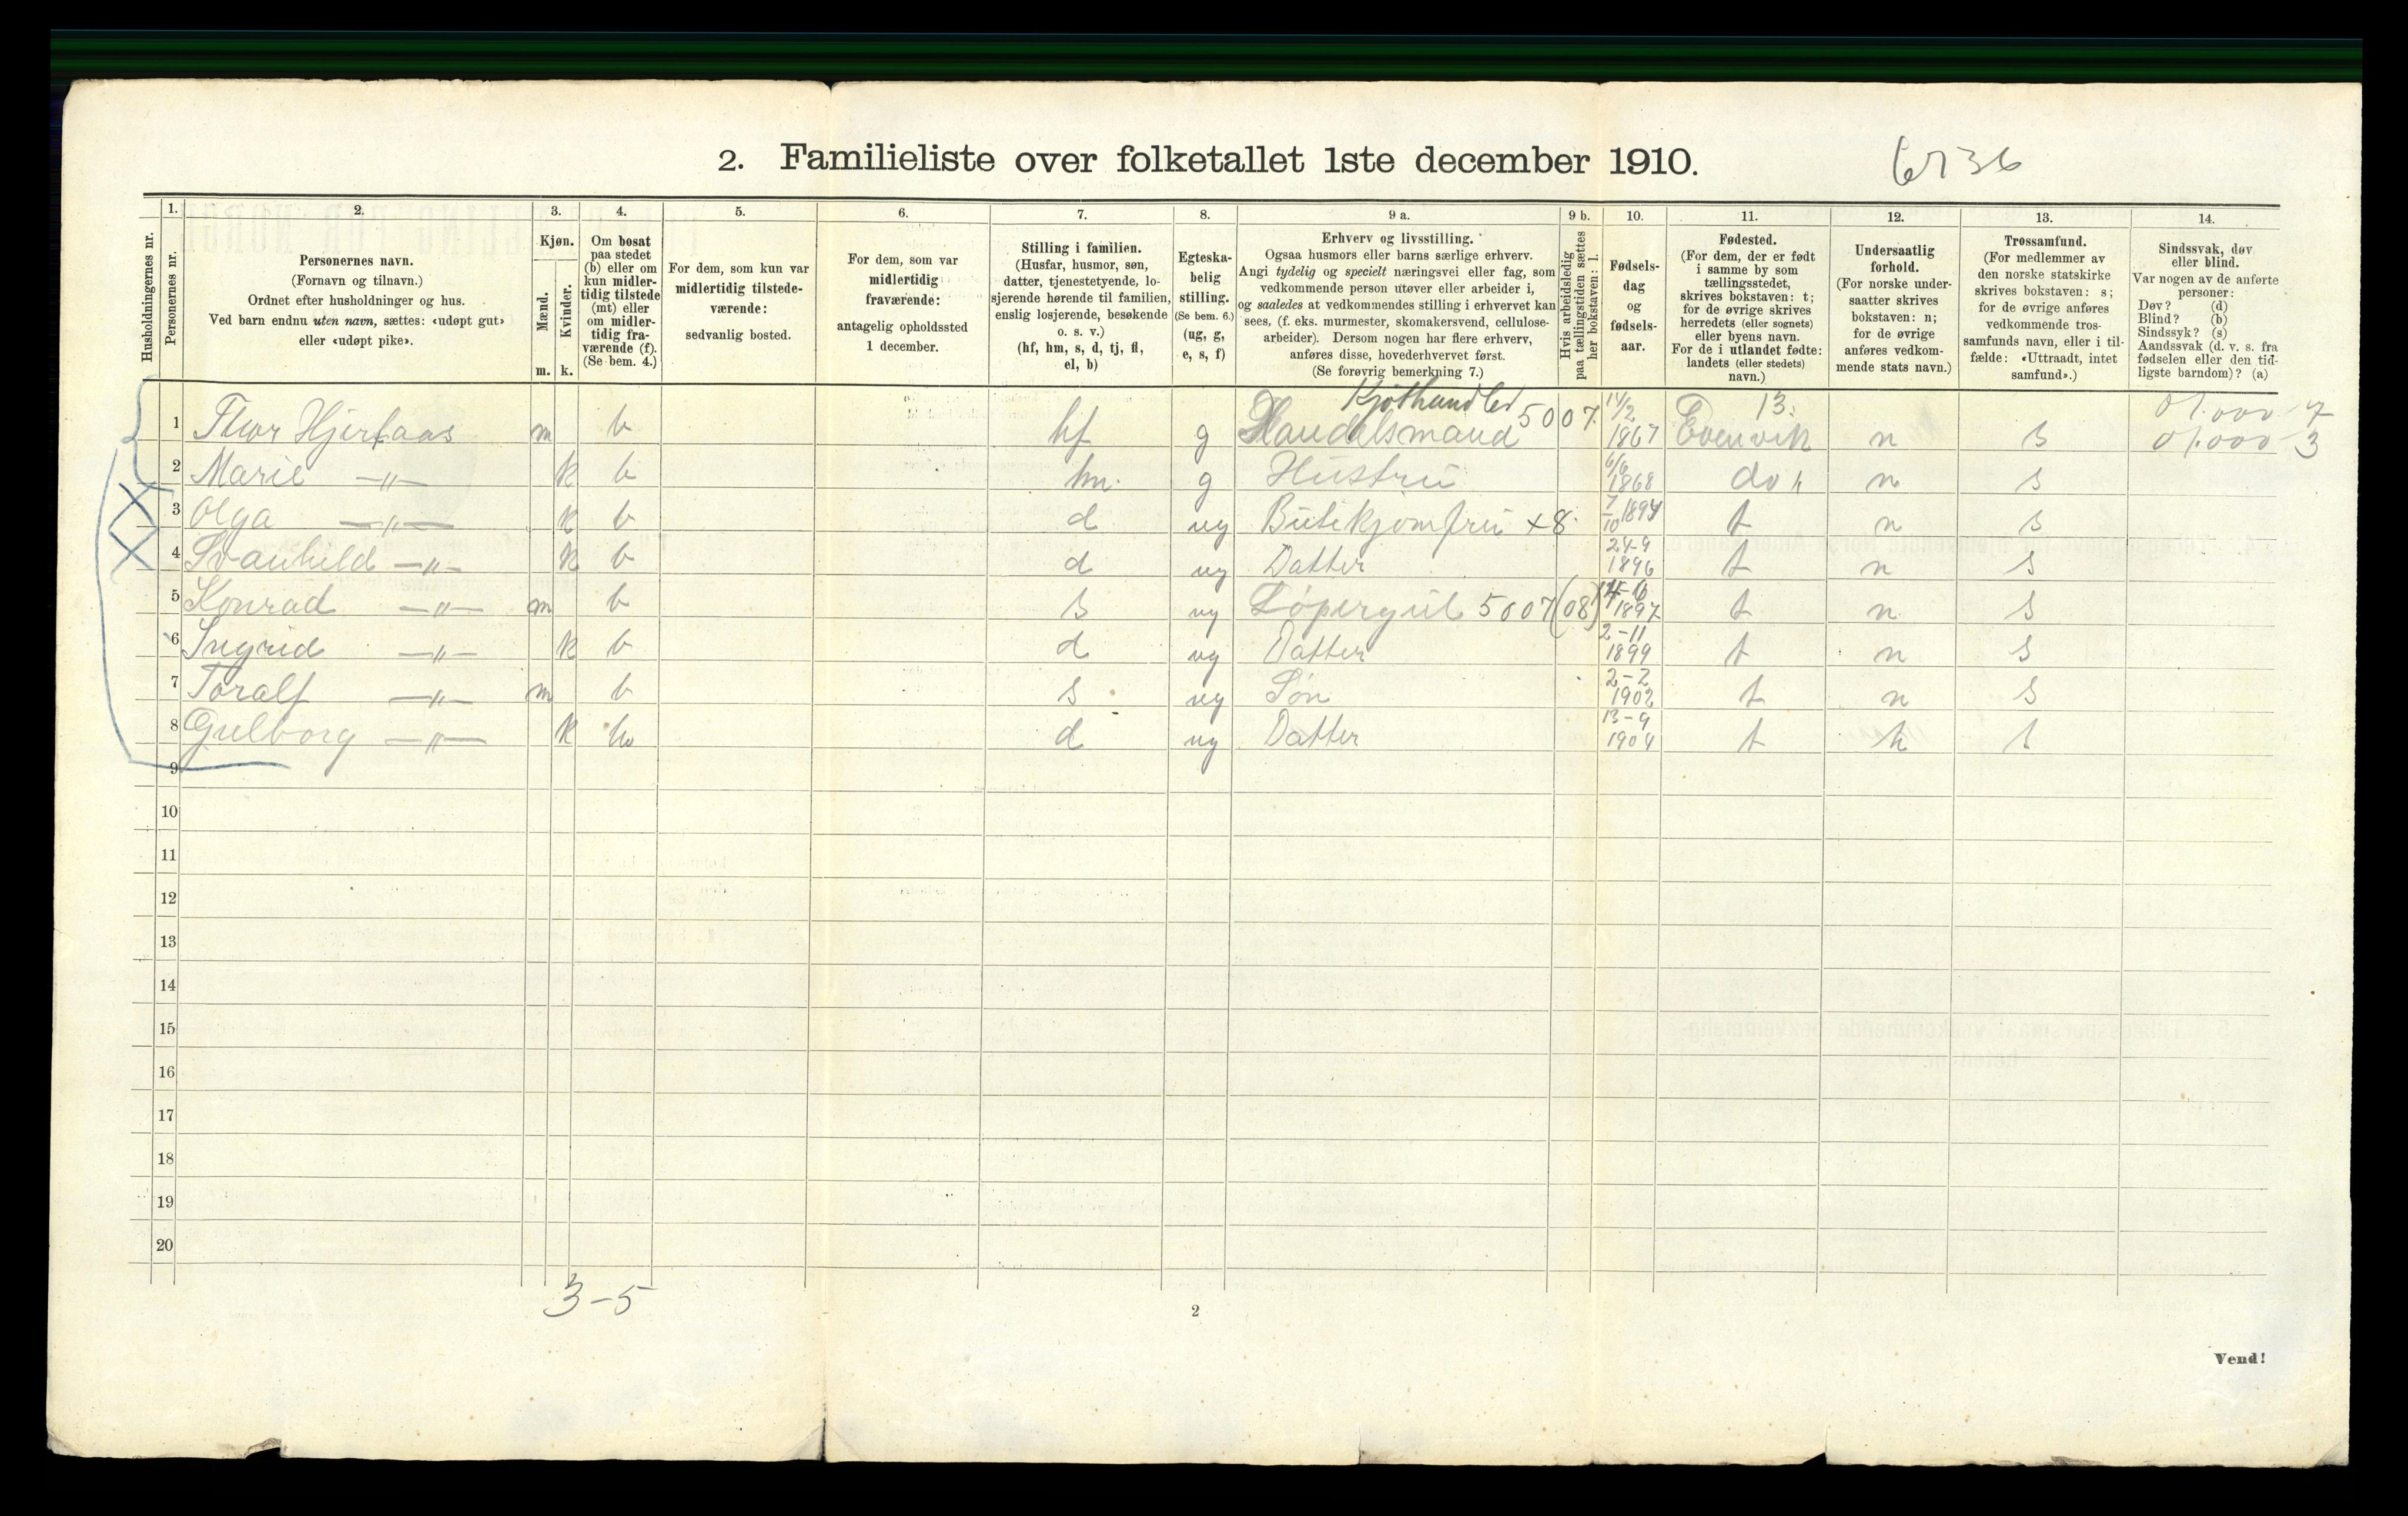 2. Familieliste over folketallet 1ste december 1910.
6736
Husholdningernes nr.
1.
Personernes nr.
2.
Personernes navn.
(Fornavn og tilnavn.)
Ordnet efter husholdninger og hus.
Ved barn endnu uten navn, sættes: «udøpt gut»
eller «udøpt pike».
3.
Kjøn.
Mænd.
Kvinder.
m. k.
4.
Om bosat
paa stedet
(b) eller om
kun midler-
tidig tilstede
(mt) eller
om midler-
tidig fra-
værende (f).
(Se bem. 4.)
5.
For dem, som kun var
midlertidig tilstede-
værende:
sedvanlig bosted.
6.
For dem, som var
midlertidig
fraværende:
antagelig opholdssted
1 december.
7.
Stilling i familien.
(Husfar, husmor, søn,
datter, tjenestetyende, lo-
sjerende hørende til familien,
enslig losjerende, besøkende
o. s. v.)
(hf, hm, s, d, tj, fl,
el, b)
8.
Egteska-
belig
stilling.
(Se bem. 6.)
(ug, g,
e, s, f)
9 a.
Erhverv og livsstilling.
Ogsaa husmors eller barns særlige erhverv.
Angi tydelig og specielt næringsvei eller fag, som
vedkommende person utøver eller arbeider i,
og saaledes at vedkommendes stilling i erhvervet kan
sees, (f. eks. murmester, skomakersvend, cellulose-
arbeider). Dersom nogen har flere erhverv,
anføres disse, hovederhvervet først.
(Se forøvrig bemerkning 7.)
9 b.
Hvis arbeidsledig
paa tællingstiden sættes
her bokstaven: l.
10.
Fødsels-
dag
og
fødsels-
aar.
11.
Fødested.
(For dem, der er født
i samme by som
tællingsstedet,
skrives bokstaven: t;
for de øvrige skrives
herredets (eller sognets)
eller byens navn.
For de i utlandet fødte:
landets (eller stedets)
navn.)
12.
Undersaatlig
forhold.
(For norske under-
saatter skrives
bokstaven: n;
for de øvrige
anføres vedkom-
mende stats navn.)
13.
Trossamfund.
(For medlemmer av
den norske statskirke
skrives bokstaven: s;
for de øvrige anføres
vedkommende tros-
samfunds navn, eller i til-
fælde: «Uttraadt, intet
samfund».)
14.
Sindssvak, døv
eller blind.
Var nogen av de anførte
personer:
Døv? (d)
Blind? (b)
Sindssyk? (s)
Aandssvak (d. v. s. fra
fødselen eller den tid-
ligste barndom)? (a)
Kjøthandler 5007. 14/2 13. 01.000-7
1 Thor Hjertaas m b hf g Handelsmand 1867 Evenvik n s 01.000-3
2 Marie —„— k b hm. g Hustru 6/6 1868 do „ n s
3 Olga —„— k b d ug Butikjomfru +8. 7/10 1894 t n s
4 Svanhild —„— k b d ug Datter 24-9 1896 t n s
5 Konrad —„— m b s ug Løpergut 5007(08) 1897 t n s
6 Ingrid —„— k b d ug Datter 2-11 1899 t n s
7 Toralf —„— m b s ug Søn 2-2 1902 t n s
8 Gulborg —„— k b d ug Datter 13-9 1904 t n s
9
10
11
12
13
14
15
16
17
18
19
20
3-5
2
Vend!